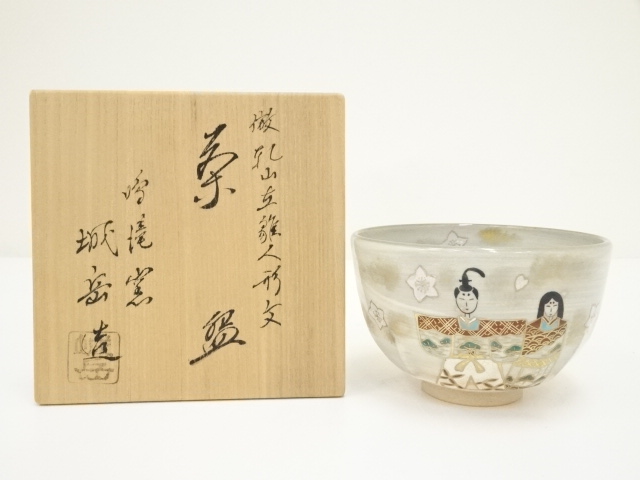 倣乾山立雛人形文
茶盌
鳴滝窯
城岳造